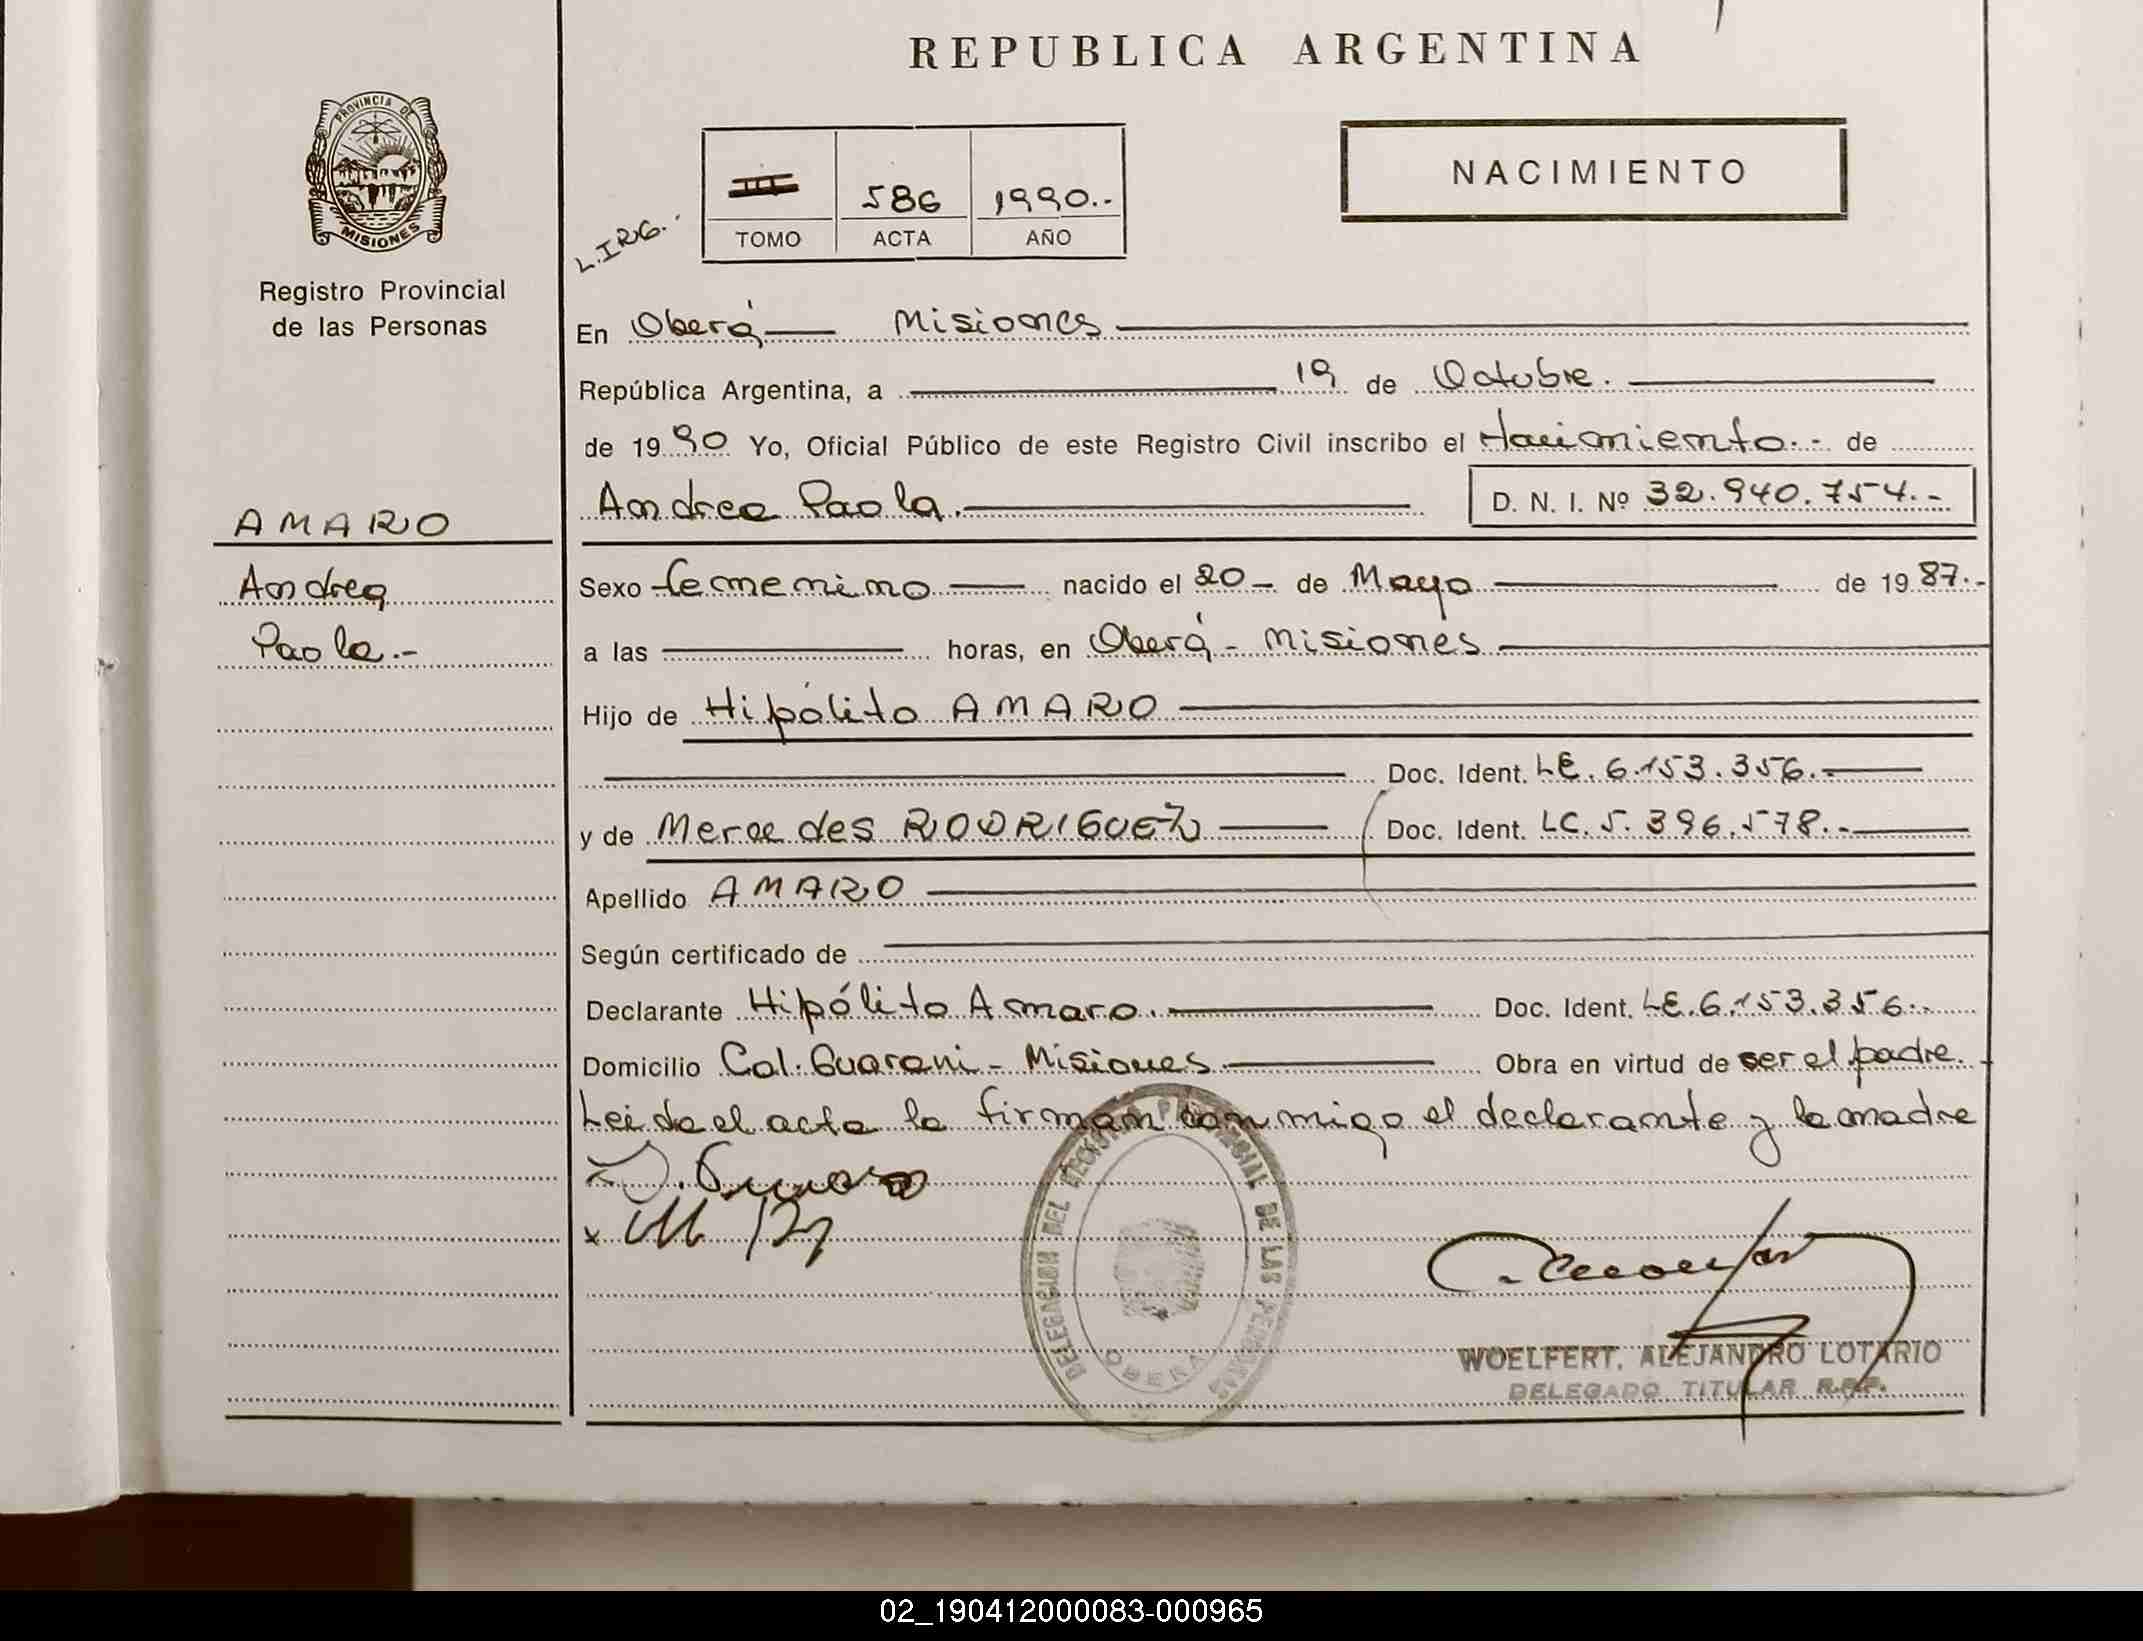 REPUBLICA ARGENTINA
PROVINCIA DE
MISIONES
Registro Provincial
de las Personas
NACIMIENTO
III 586 1990.-
TOMO ACTA AÑO
En Oberá Misiones
República Argentina, a 19 de Octubre.
de 1990 Yo, Oficial Público de este Registro Civil inscribo el Nacimiento.- de
Andrea Paola. D. N. I. Nº 32.940.754.-
AMARO
Andrea
Paola.-
Sexo femenino nacido el 20 de Mayo de 1987.-
a las horas, en Oberá - Misiones
Hijo de Hipólito AMARO
Doc. Ident. LE. 6.153.356.-
y de Mercedes RODRIGUEZ Doc. Ident. LC. 5.396.578.-
Apellido AMARO
Según certificado de
Declarante Hipólito Amaro. Doc. Ident. LE. 6.153.356.-
Domicilio Col. Guarani - Misiones Obra en virtud de ser el padre.
Leida el acta la firman conmigo el declarante y la madre
DELEGACION DEL REGISTRO PROVINCIAL DE LAS PERSONAS
OBERA
WOELFERT, ALEJANDRO LOTARIO
DELEGADO TITULAR R.P.P.
02_190412000083-000965